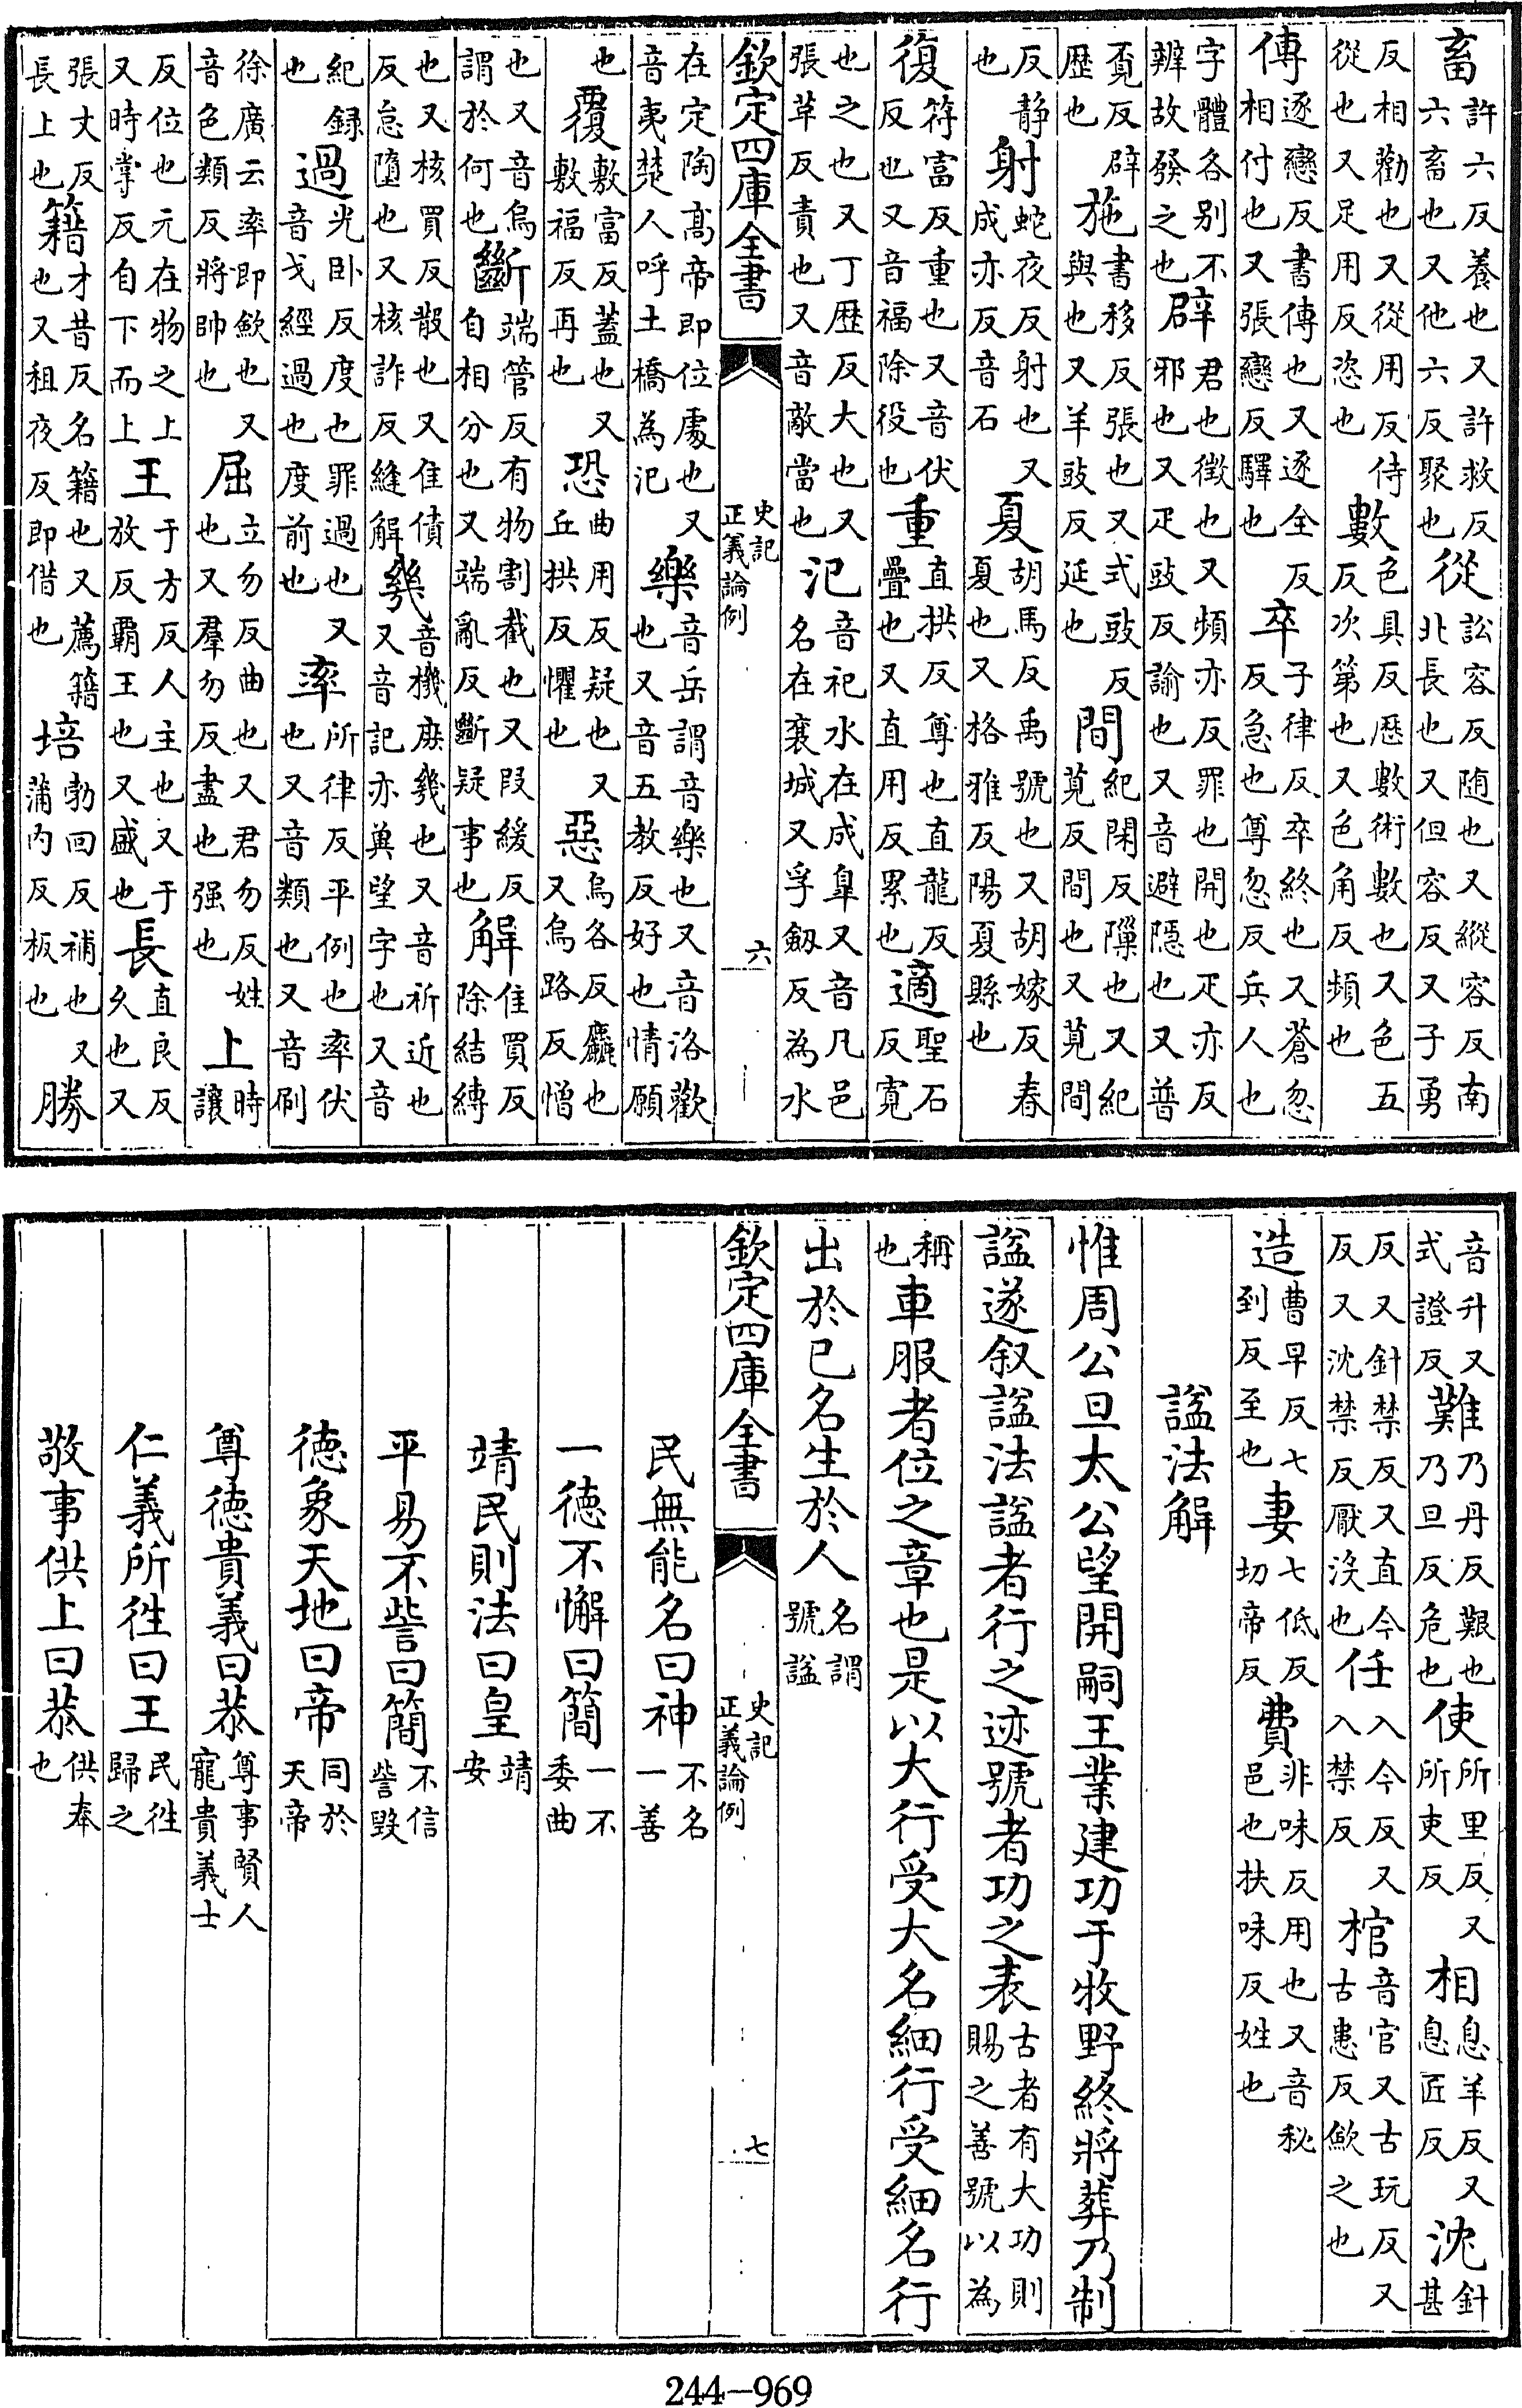 畜許六反養也又許救反六畜也又他六反聚也從訟容反随也又縱容反南北長也又但容反又子勇
反相勸也又從用反侍從也又足用反恣也數色具反歷數術數也又色五反次第也又色角反頻也
傳逐戀反書傳也又逐全反相付也又張戀反驛也卒子律反卒終也又蒼忽反急也尊忽反兵人也
字體各别不辨故發之也辟君也徴也又頻亦反罪也開也疋亦反邪也又疋豉反諭也又音避隱也又普
覔反辟歴也施書移反張也又式豉反與也又羊豉反延也間紀閑反隟也又紀莧反間也又莧間
反静也射蛇夜反射也又成亦反音石夏胡馬反禹號也又胡嫁反春夏也又格雅反陽夏縣也
復符富反重也又音伏反也又音福除役也重直拱反尊也直龍反疊也又直用反累也適聖石反寛
也之也又丁歴反大也又張草反責也又音敵當也汜音祀水在成臯又音凡邑名在襄城又孚劔反為水
欽定四庫全書 史記正義論例 六
在定陶髙帝即位處也又音夷楚人呼土橋為汜樂音岳謂音樂也又音洛歡也又音五教反好也情願
也覆敷富反蓋也又敷福反再也恐曲用反疑也又丘拱反懼也惡烏各反麤也又烏路反憎
也又音烏謂於何也斷端管反有物割截也又叚緩反自相分也又端亂反斷疑事也解隹買反除結縛
也又核買反散也又隹債反怠墮也又核詐反縫解幾音機庶幾也又音祈近也又音記亦兾望字也又音
紀録也過光卧反度也罪過也又音戈經過也度前也率所律反平例也率伏也又音類也又音刷
徐廣云率即歛也又音色類反將帥也屈立勿反曲也又君勿反姓也又羣勿反盡也强也上時讓
反位也元在物之上又時掌反自下而上王于方反人主也又于放反霸王也又盛也長直良反久也又
張丈反長上也籍才昔反名籍也又薦籍也又租夜反即借也培勃回反補也又蒲内反板也勝
音升又式證反難乃丹反艱也乃旦反危也使所里反又所吏反相息羊反又息匠反沈針甚
反又針禁反又直今反又沈禁反厭沒也任入今反又入禁反棺音官又古玩反又古患反歛之也
造曹早反七到反至也妻七低反切帝反費非味反用也又音秘邑也扶味反姓也
諡法解
惟周公旦太公望開嗣王業建功于牧野終將葬乃制
諡遂叙諡法諡者行之迹號者功之表古者有大功則賜之善號以為
稱也車服者位之章也是以大行受大名細行受細名行
出於已名生於人名謂號諡
欽定四庫全書 史記正義論例 七
民無能名曰神不名一善
一德不懈曰簡一不委曲
靖民則法曰皇靖安
平易不訾曰簡不信訾毀
德象天地曰帝同於天帝
尊德貴義曰恭尊事賢人寵貴義士
仁義所徃曰王民徃歸之
敬事供上曰恭供奉也
244—969